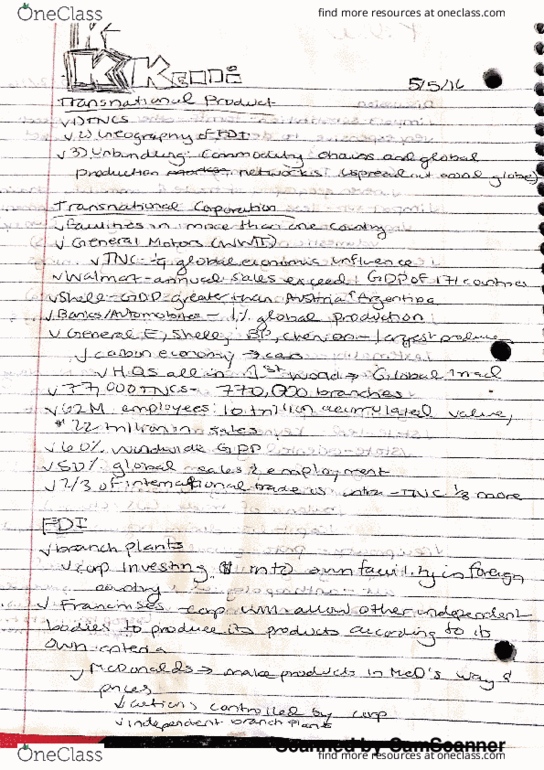 OneClass
find more resources at oneclass.com
5/5/16
Transnational Product
✓1) TNCS
✓2) Geography of FDI
✓3) Unbundling: commodity chains and global
production networks (spread out around globe)
Transnational Corporation
✓Facilities in more than one country
✓General Motors (WWII)
✓TNC → global economic influence
✓Walmart - annual sales exceed GDP of 171 countries
✓Shell - GDP greater than Austria, Argentina
✓Banks/Automobiles - 1% global production
✓General E, Shell, BP, Chevron - largest
✓carbon economy → cars
✓HQs all in 1st world →
✓77,000 TNCS - 770,000 branches
✓62M employees: 10 trillion accumulated value,
sales
✓60% worldwide GDP
✓50% global sales & employment
✓2/3 of international trade is intra-TNC 1/3 more
FDI
✓branch plants
✓corp investing into own facility in foreign
country
✓Franchises - corp will allow other independent
bodies to produce its products according to its
own criteria
✓McDonalds → make products in McD's way &
prices
✓actions controlled by corp
✓independent branch plants
Scanned by CamScanner
OneClass
find more resources at oneclass.com